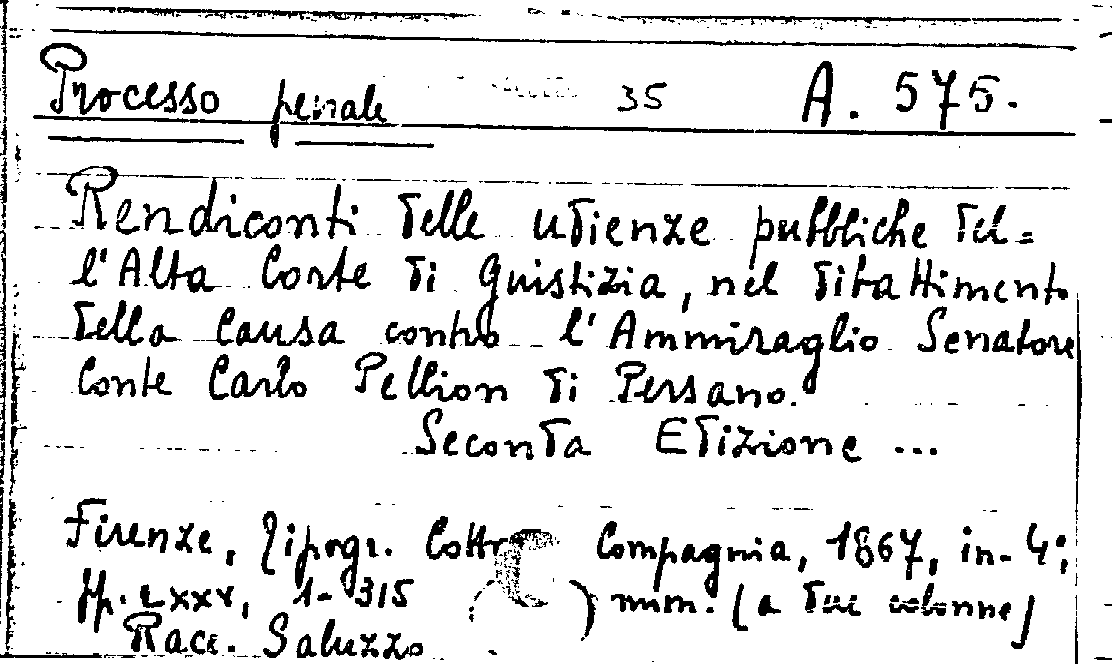 Processo penale 35 A. 575.
Rendiconti delle udienze pubbliche del=
l'Alta Corte di Guistizia, nel dibattimento
della Causa contro l'Ammiraglio Senatore
Conte Carlo Pellion di Persano.
Seconda Edizione ...
Firenze, Tipogr. Compagnia, 1867, in-4°;
pp. LXXX, 1-315 ( ) num. (a due colonne)
Racc. Saluzzo